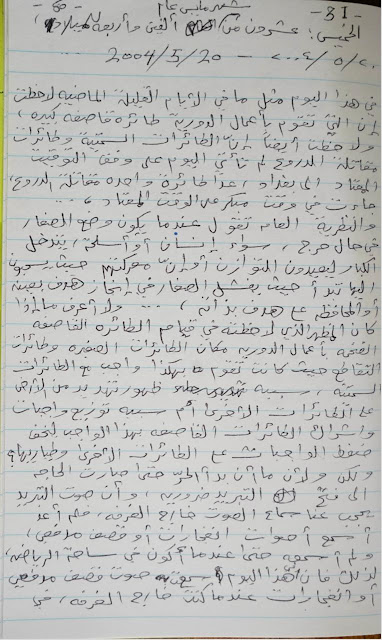 - 31 -
شهر مايس عام
الخميس: عشرون من ألفين وأربعة ميلادي
2004/5/20 - ٢٠٠٤/٥/٢٠
في هذا اليوم مثل ما في الأيام القليلة الماضية لاحظت
إن التي تقوم بأعمال الدورية طائرة قاصفة كبيرة،
ولاحظت أيضاً إن الطائرات السمتية وطائرات
مقاتلة الدروع لم تأتي اليوم على وفق التوقيت
المعتاد إلى بغداد، عدا طائرة واحدة مقاتلة الدروع،
جاءت في وقت مبكر على الوقت المعتاد،
والنظرية العامه تقول عندما يكون وضع الصغار
في حال حرج، سواء إنسان أو أسلحة، يتدخل
الكبار ليعيدون التوازن أو إن معركتهم حيث يسعون
إليها تبدأ حيث يفشل الصغار في إنجاز هدف بعينه
أو المحافظه على هدف بذاته، ... ولا أعرف ماإذا
كان المظهر الذي لاحظته في قيام الطائره القاصفه
الضخمه بأعمال الدوريه مكان الطائرات الصغيره وطائرات
التقاطع حيث كانت تقوم بهذا واجب مع الطائرات
السمتية، سببه ظهور تهديد من الأرض
على الطائرات الأخرى أم سببه توزيع واجبات
واشراك الطائرات القاصفه بهذا الواجب لتخفف
ضغط الواجبات على الطائرات الأخرى وطياريها؟
ولكن ولأن ما أن بدأ الحرّ حتى صارت الحاجه
إلى فتح التبريد ضروريه، وأن صوت التبريد
يحجب عنا سماع الصوت خارج الغرفه، فلم أعد
أسمع أصوات انفجارات أو قصف مدفعي،
ولم أسمعه حتى عندما أكون في ساحة الرياضه،
لذلك فان هذا اليوم سمعت صوت قصف مدفعي
أو انفجارات عندما كنت خارج الغرفه، في